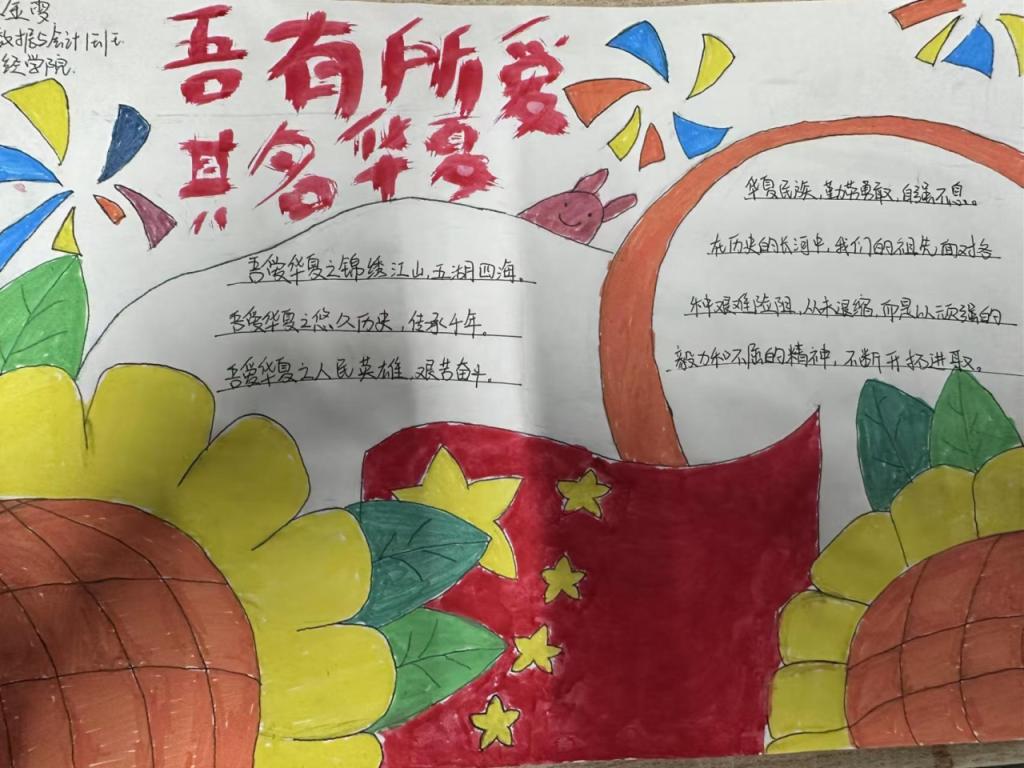 数据与会计
经学院
吾有所爱
其名华夏
吾爱华夏之锦绣江山,五湖四海。
吾爱华夏之悠久历史,传承千年。
吾爱华夏之人民英雄,艰苦奋斗。
华夏民族,勤劳勇敢,自强不息。
在历史的长河中,我们的祖先,面对各
种艰难险阻,从未退缩,而是以顽强的
毅力和不屈的精神,不断开拓进取。